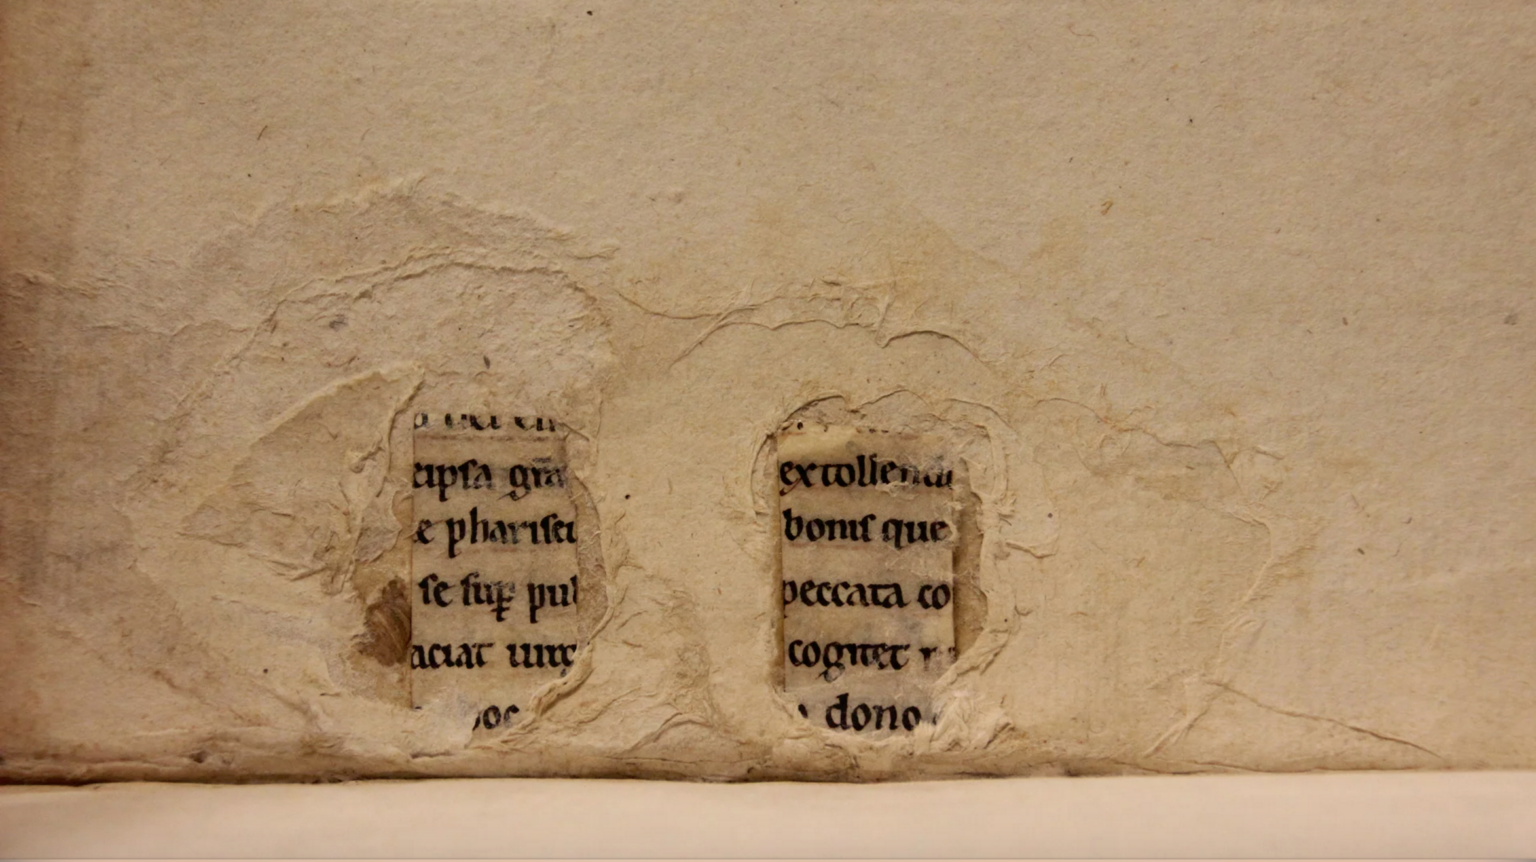 cipsa gra
e pharisei
se sup pul
aciat uirg
hoc
extollendi
bonis que
peccata co
cogitet
dono